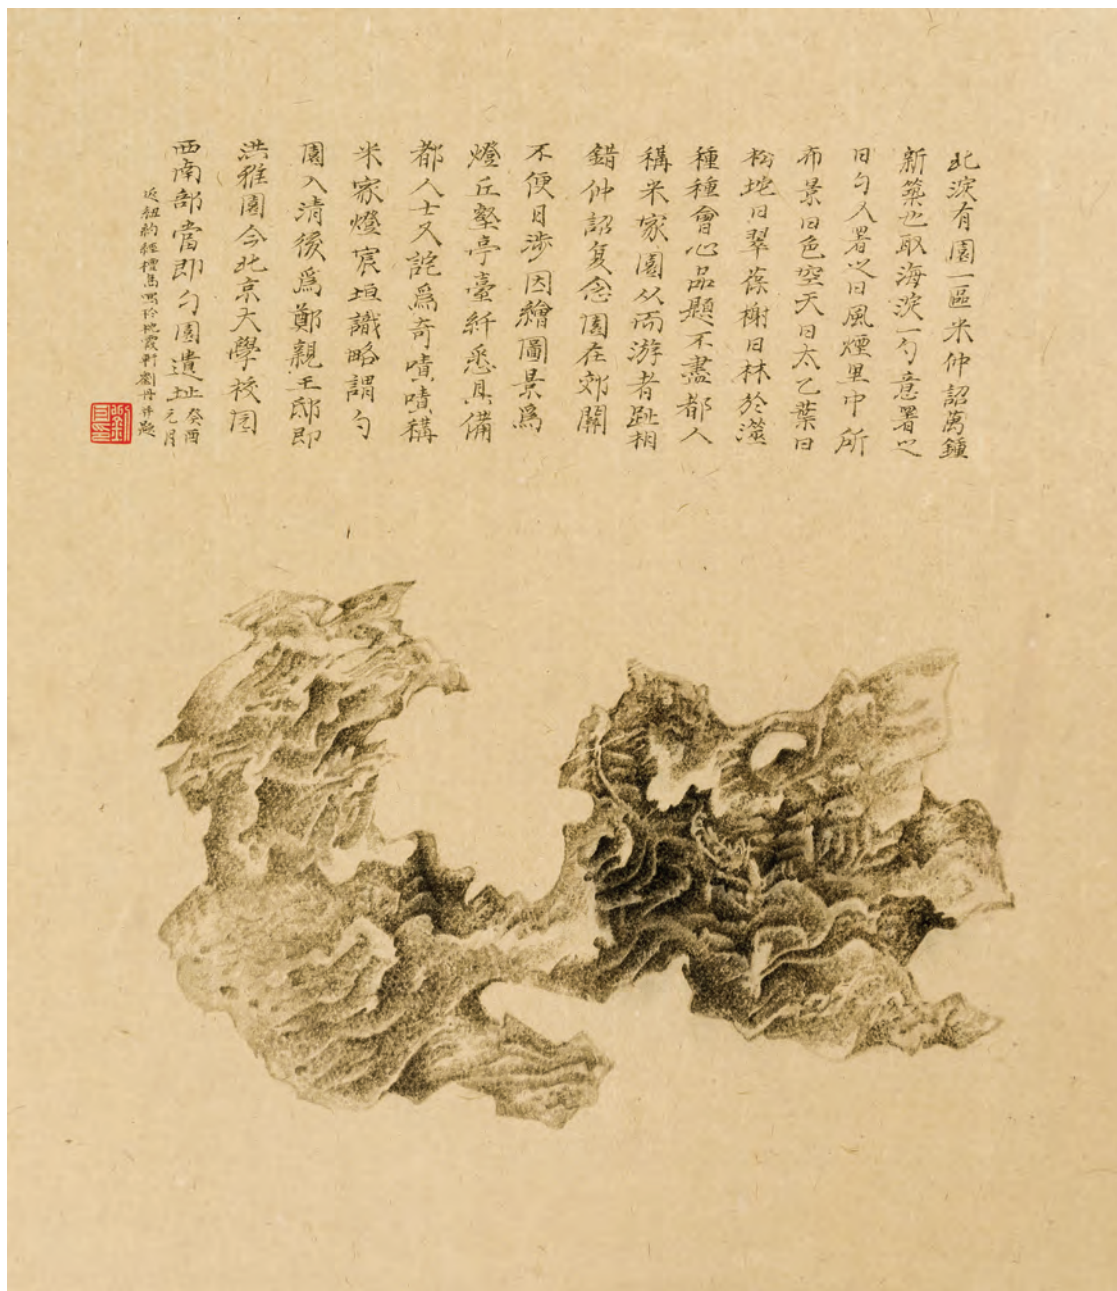 北淀有園一區米仲詔萬鍾
新築也取海淀一勺意署之
曰勺又署之曰風煙里中所
布景曰色空天曰太乙葉曰
松垞曰翠葆榭曰林於澨
種種會心品題不盡都人
稱米家園从而游者趾相
錯仲詔复念園在郊關
不便日涉因繪園景爲
燈丘壑亭臺纤悉具備
都人士又詫爲奇嘖嘖稱
米家燈宸垣識略謂勺
園入清後爲鄭親王邸即
洪雅園今北京大學校园
西南部當即勺園遺址 癸酉元月
返紐約經檀島寫於 霞軒劉丹并題